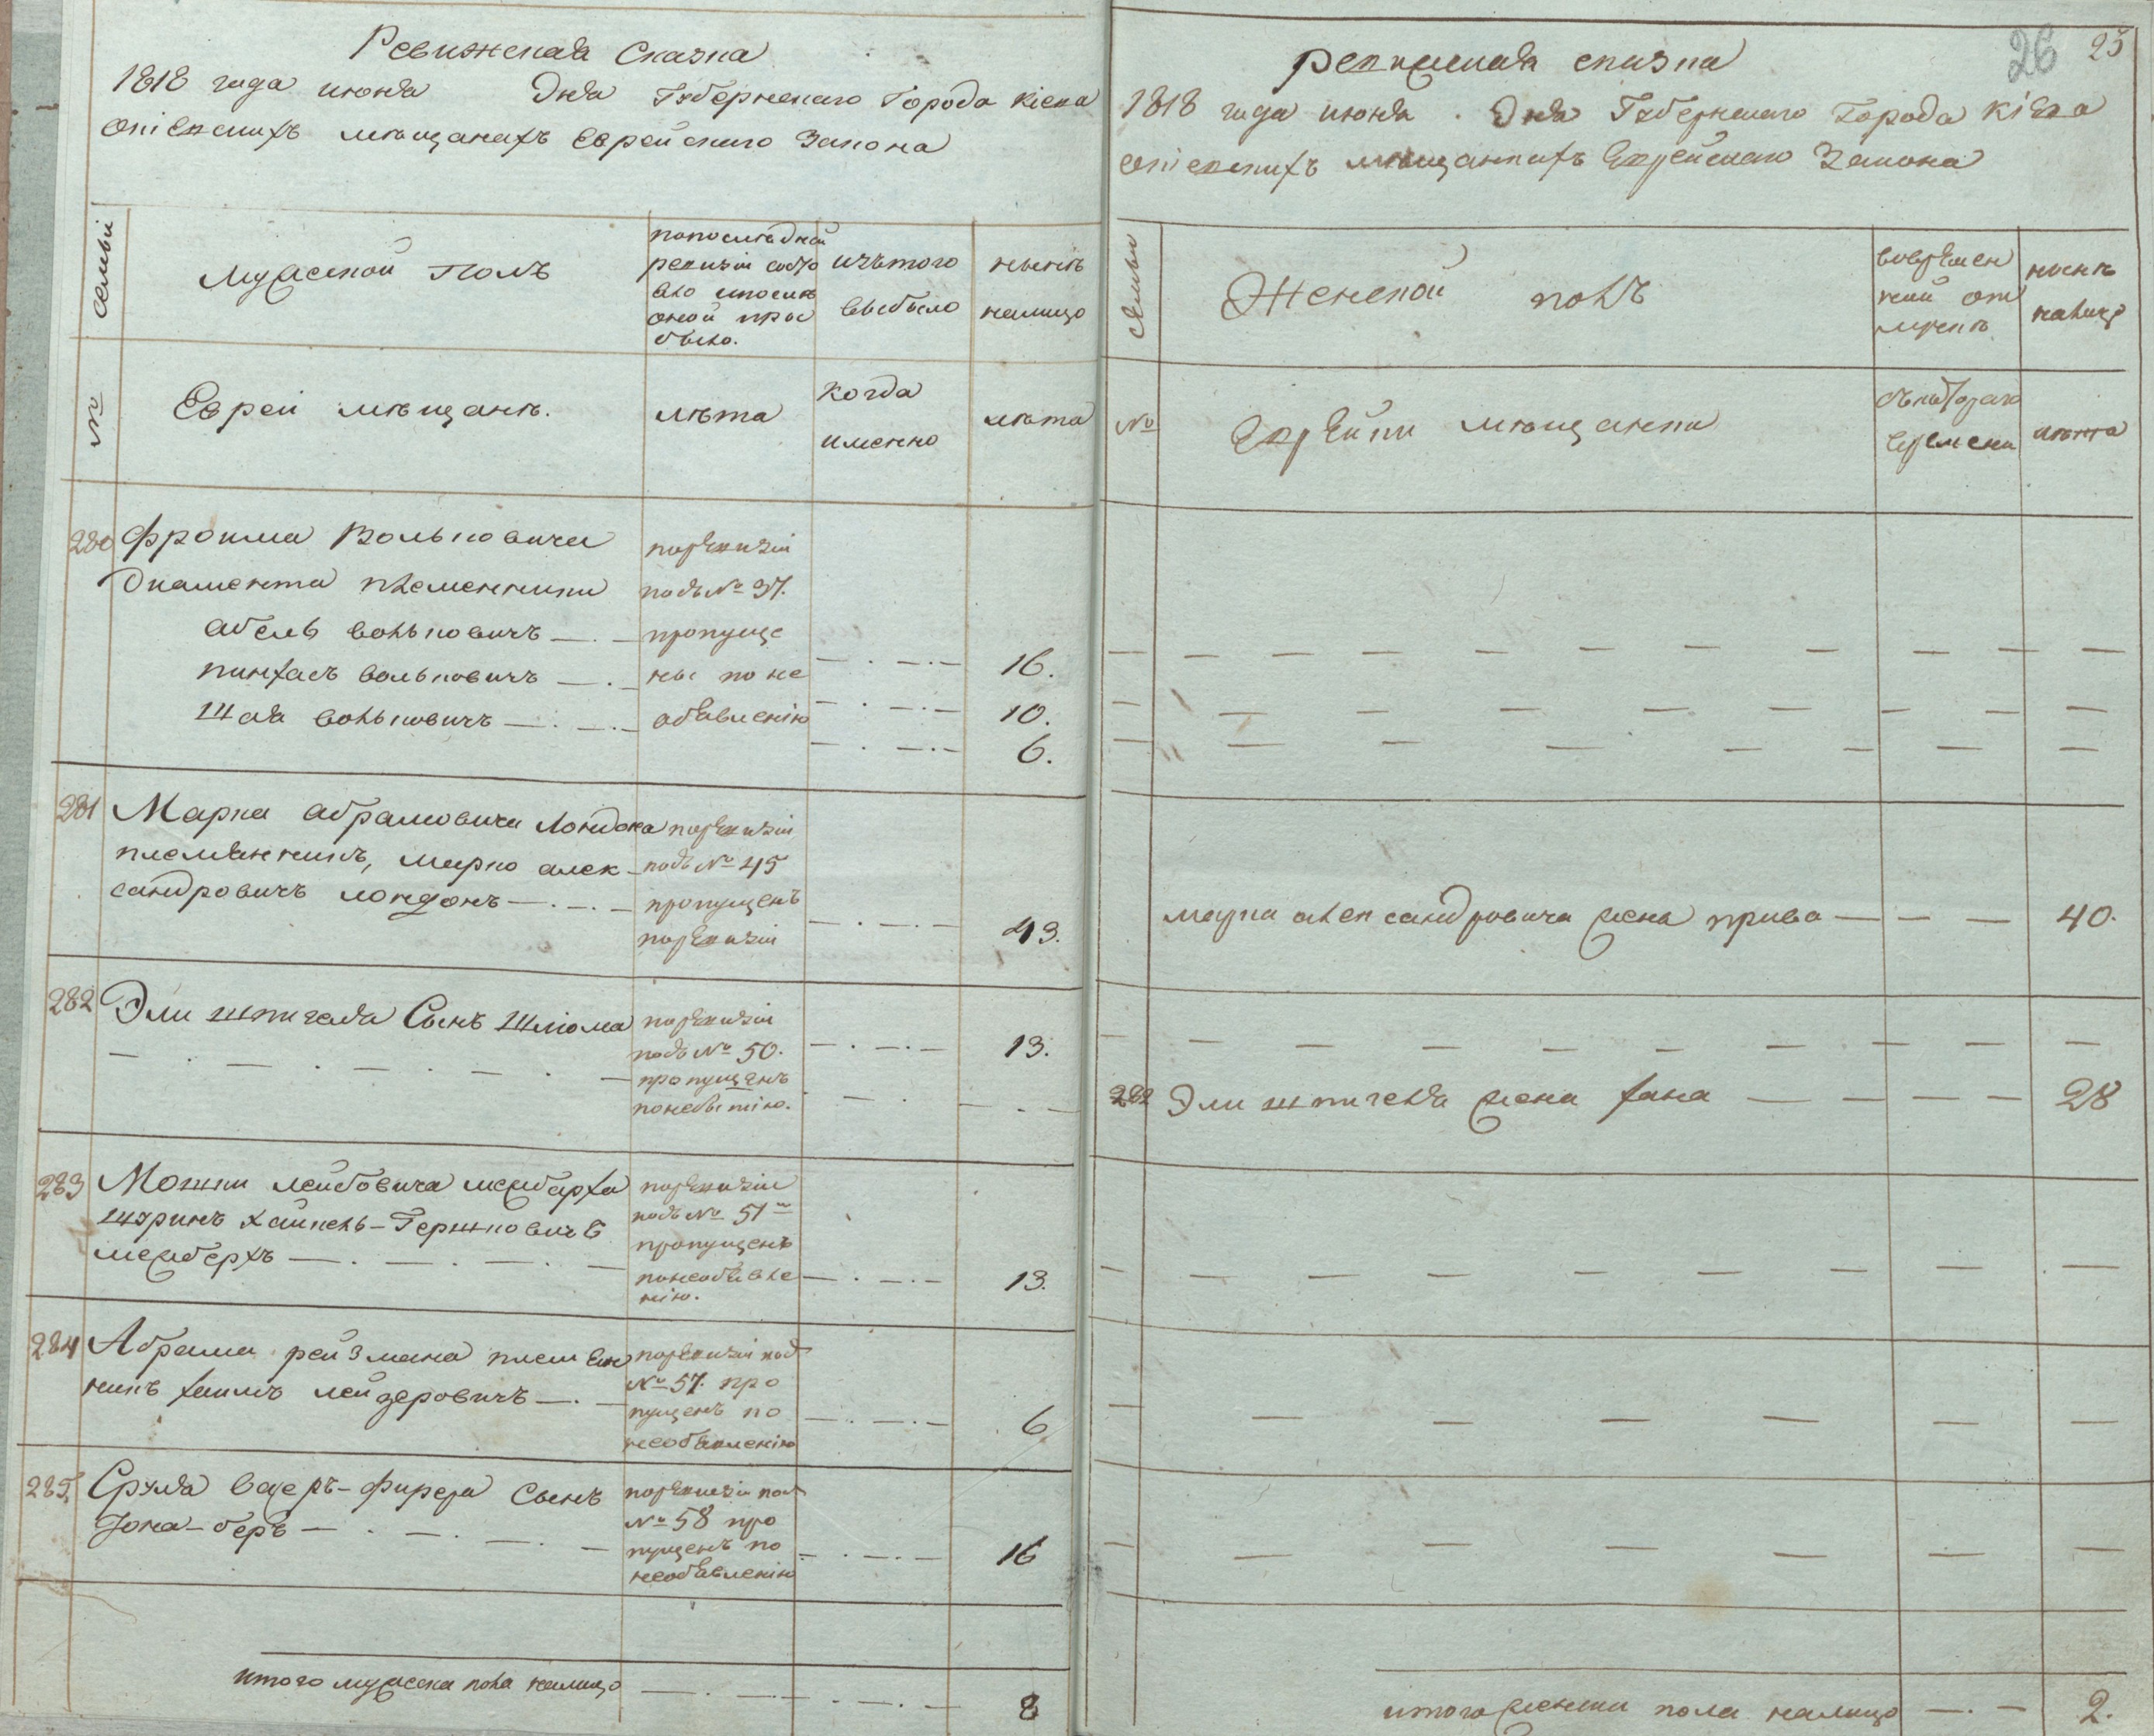 Ревижская Сказка
1818 года июня Дня Губернскаго Города Кіева
опіевскихъ мѣщанахъ Еврейскаго Закона
семьи
Мужеской Полъ
попоследней
ревизіи состо
яло ипослѣ
оной при
было.
изътого
выбыло
нынѣ
налицо
№
Евреи мѣщанѣ.
лѣта
когда
именно
лѣта
280 Фроима Вольковича
Диамента племенники
абель вольковичъ — . —
пинхасъ вольковичъ — . —
Шая вольковичъ — . — . —
поревизіи
подъ № 37.
пропуще
ны по не
объявленію
16.
10.
6.
281 Марка абрамовича Лондона
племянникъ, марко алек-
сандровичъ лондонъ — . — . —
поревизіи
подъ № 45
пропущенъ
поревизіи
43.
282 Эли шпигеля Сынъ Шліома
поревизіи
подъ № 50.
пропущенъ
понебытію.
13.
283 Мошки лейбовича межберха
шуринъ хайкель-Гершковичъ
межберхъ — . — . — . —
поревизіи
подъ № 51
пропущенъ
понеобъявле
нію.
13.
284 Абрама рейзмана племен
никъ хаимъ лейзеровичъ — . —
поревизіи под
№ 57. про
пущенъ по
необъявленію
6
285. Сруля важеръ-фирера Сынъ
Іона-беръ — . — . — . —
поревизіи под
№ 58 про
пущенъ по
необъявленію
16
итого мужеска пола налицо — . — . — . —
8
26 25
ревижская сказка
1818 года июня . Дня Губернскаго Города Кіева
опіевскихъ мѣщанкахъ Еврейскаго Закона
семьи
Женской полъ
вовремен
ной от
лучкѣ
нынѣ
налицо
№
Еврейки мѣщанки
съкотораго
времени
лѣта
марка александровича жена прива — — — 40.
282 Эли шпигеля жена хана — — — — 28
итого женска пола налицо — . — 2.